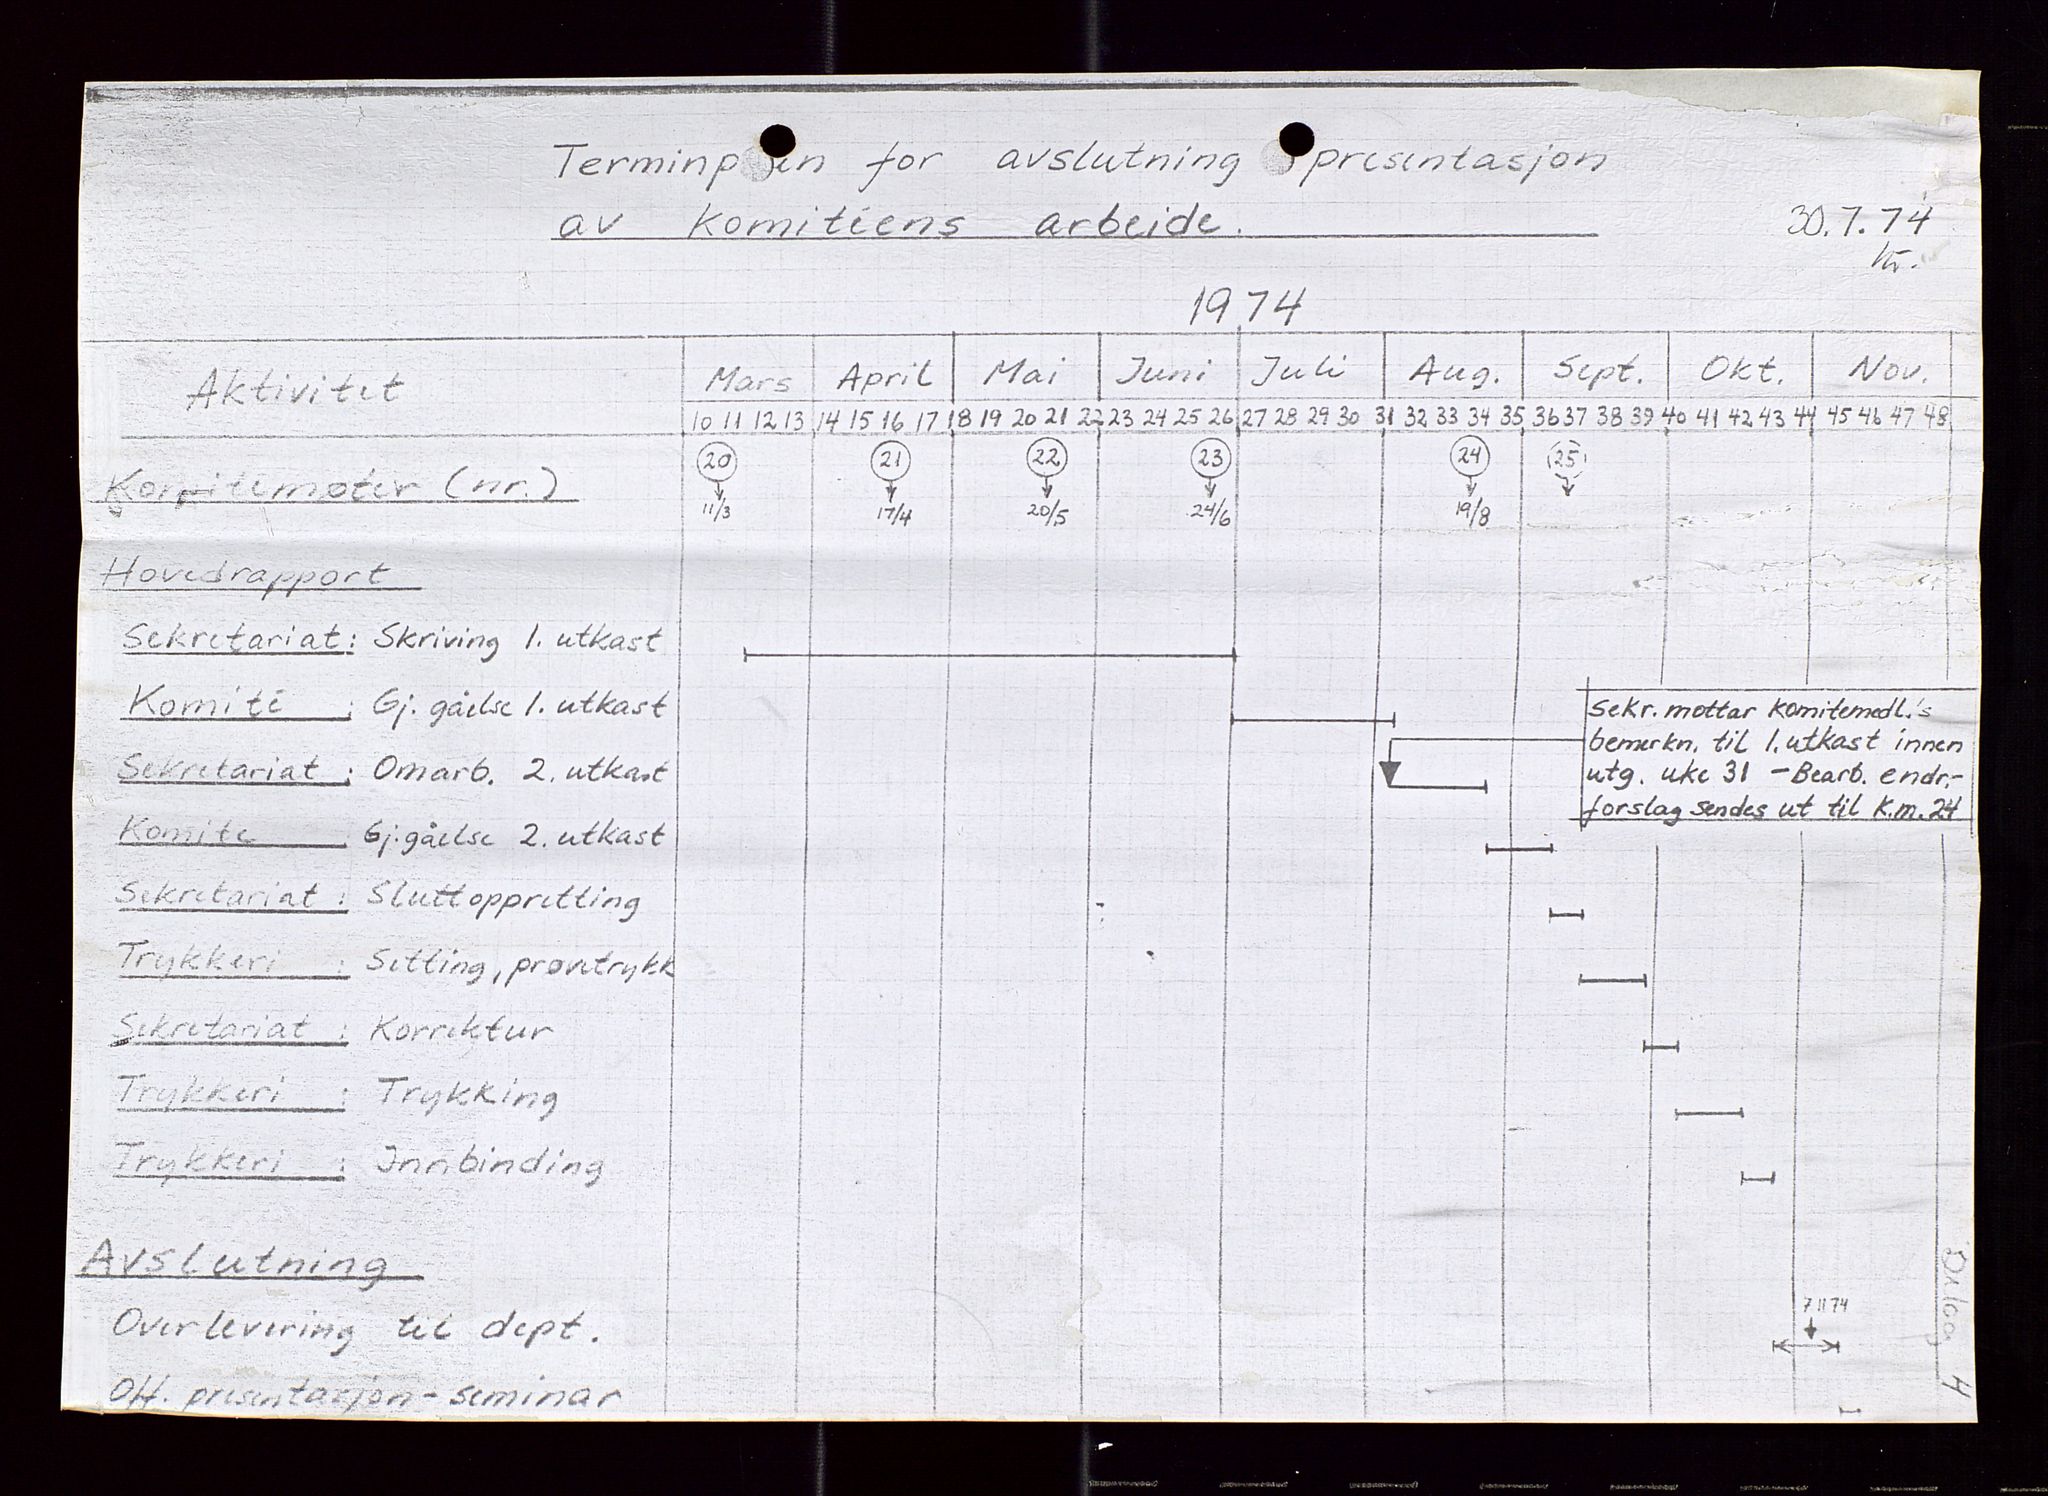 Terminplan for avslutning presentasjon
av komitéens arbeide.
30.7.74
1974
Aktivitet
Mars April Mai Juni Juli Aug. Sept. Okt. Nov.
10 11 12 13 14 15 16 17 18 19 20 21 22 23 24 25 26 27 28 29 30 31 32 33 34 35 36 37 38 39 40 41 42 43 44 45 46 47 48
Komitemøter (nr.) 20 21 22 23 24 25
11/3 17/4 20/5 24/6 19/8
Hovedrapport
Sekretariat: Skriving 1. utkast
Komité : Gj. gåelse 1. utkast
Sekr. mottar komitemedl.'s
bemerkn. til 1. utkast innen
utg. uke 31 - Bearb. endr.-
forslag sendes ut til K.m. 24
Sekretariat : Omarb. 2. utkast
Komite : Gj. gåelse 2. utkast
Sekretariat : Sluttoppretting
Trykkeri : Setting, prøvetrykk
Sekretariat : Korrektur
Trykkeri : Trykking
Trykkeri : Innbinding
Avslutning
Overlevering til dept.
7 11 74
Off. presentasjon - seminar
Bilag 4